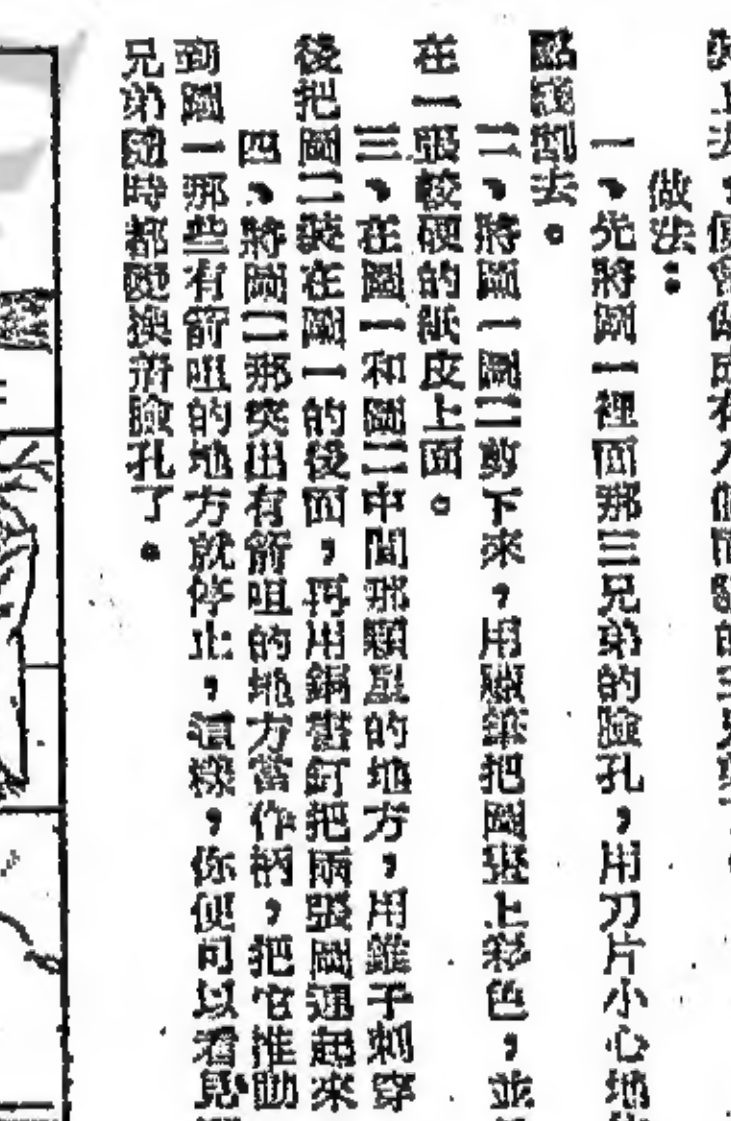 做法：
一、先將圖一裡面那三兄弟的臉孔，用刀片小心地
點綫割去。
二、將圖一圖二剪下來，用臘筆把圖畫上彩色，並
在一張較硬的紙皮上面。
三、在圖一和圖二中間那顆星的地方，用錐子刺穿
後把圖二裝在圖一的後面，再用銅書釘把兩張圖連起來
四、將圖二那突出有箭咀的地方當作柄，把它推動
到圖一那些有箭咀的地方就停止，這樣，你便可以看見
兄弟隨時都變換着臉孔了。